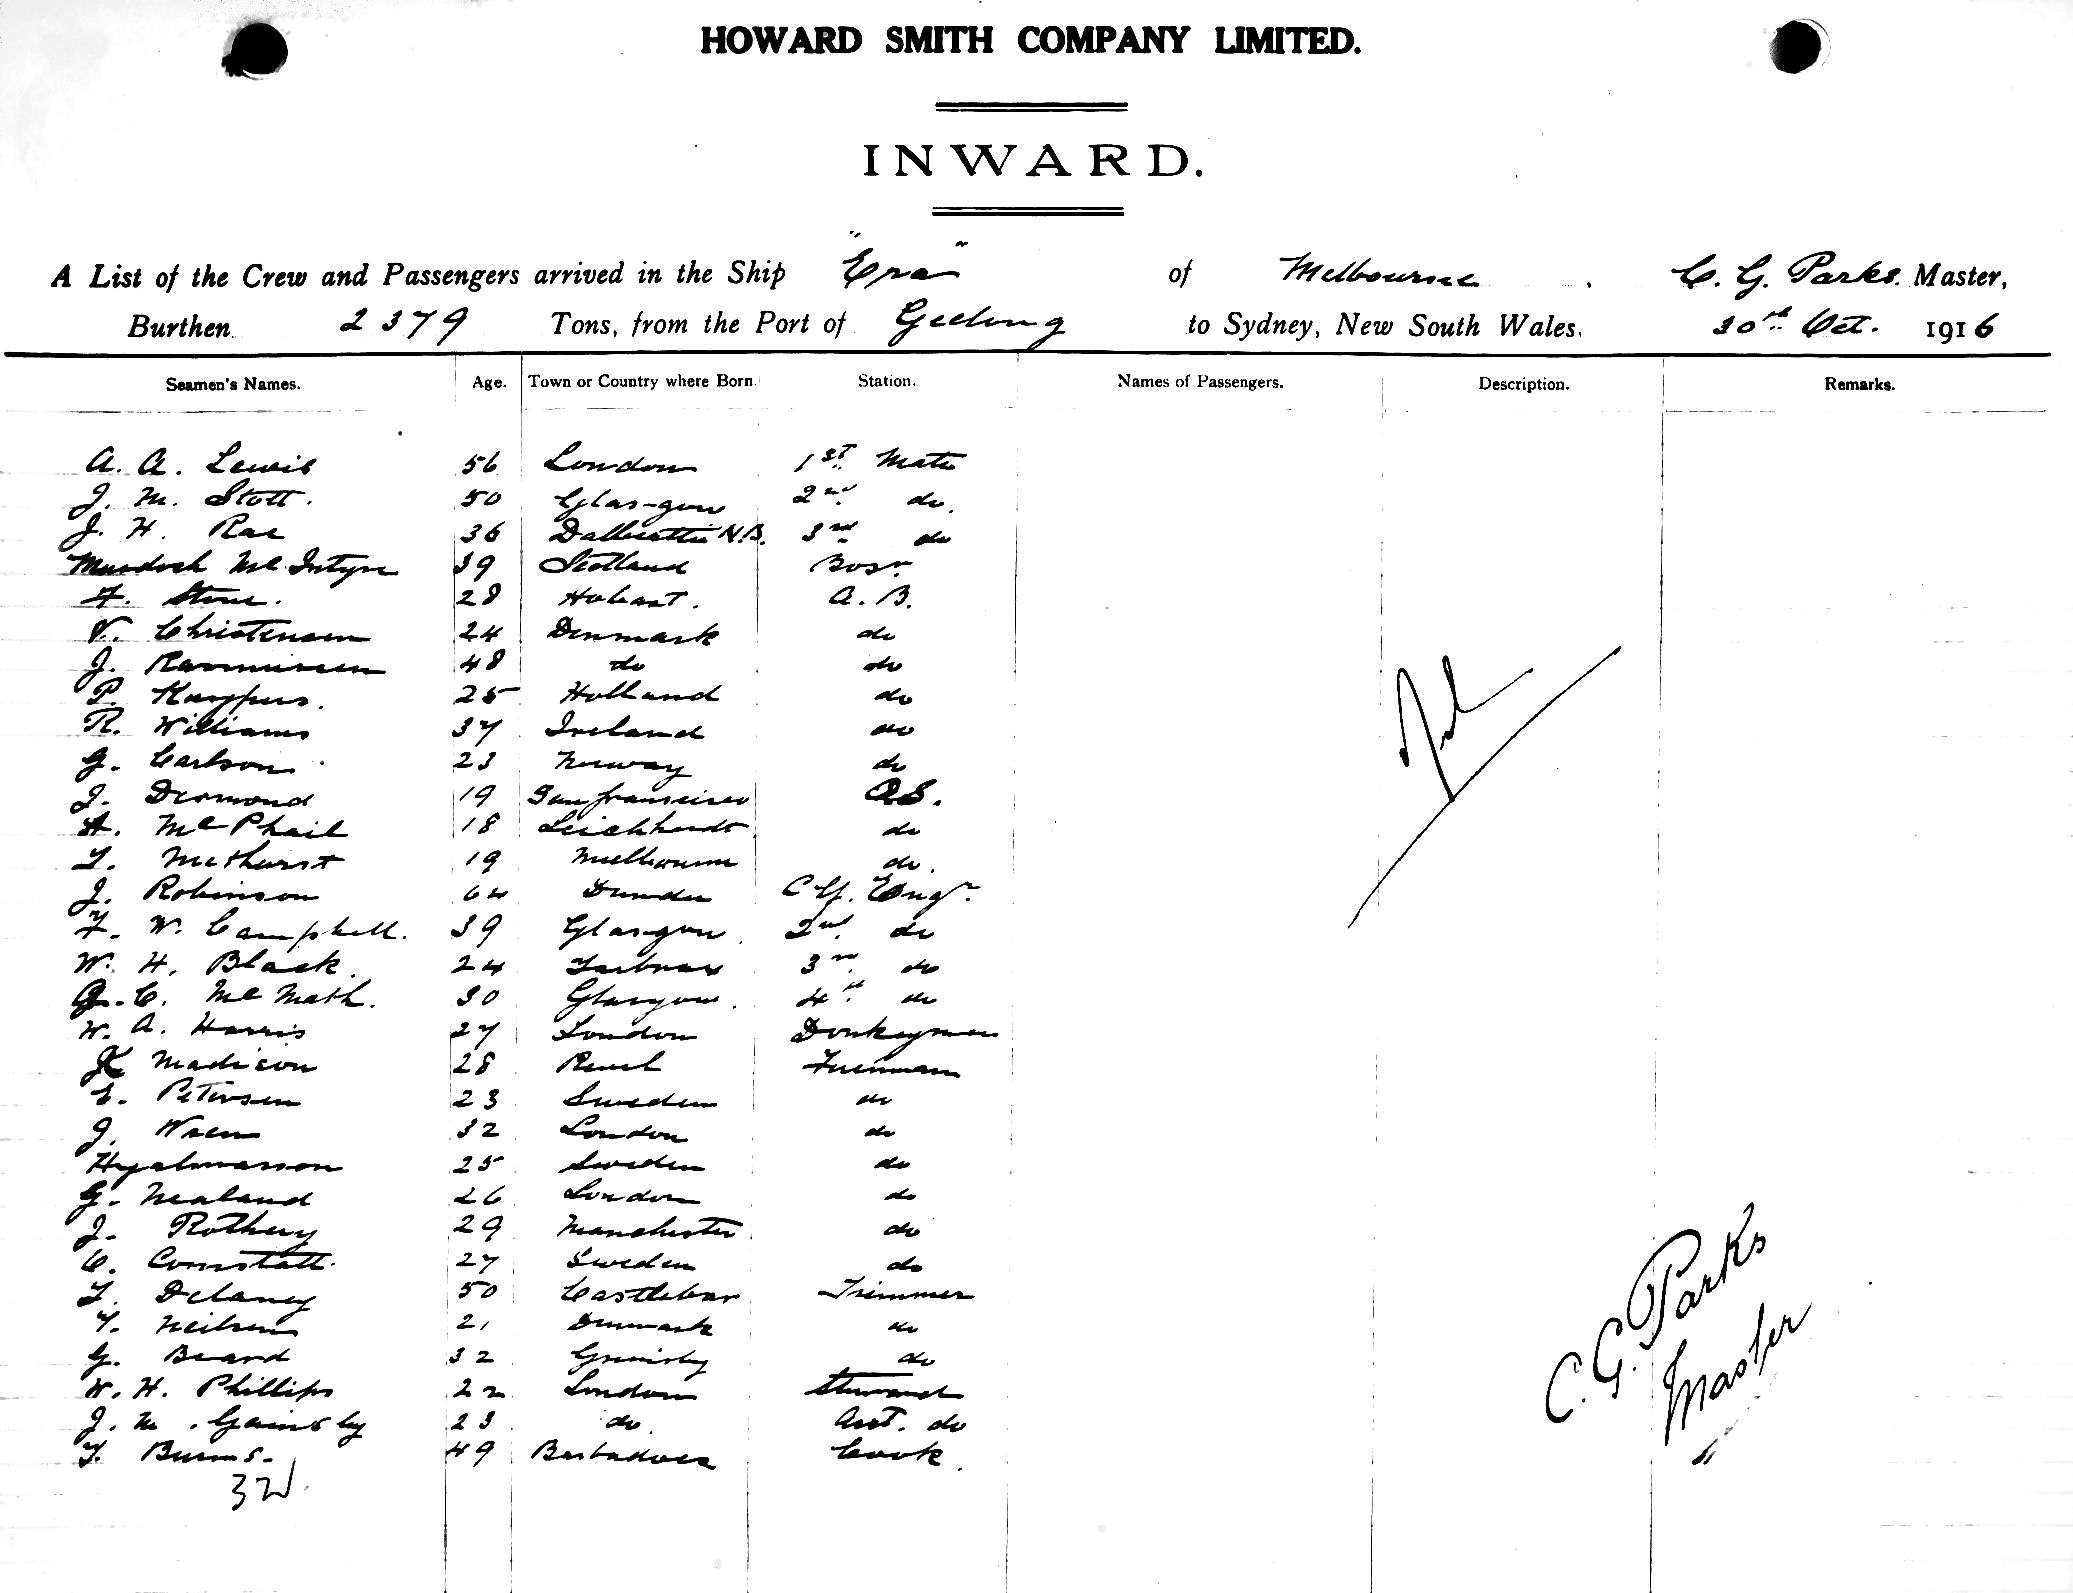 HOWARD SMITH COMPANY LIMITED.
INWARD.
A List of the Crew and Passengers arrived in the Ship "Era" of Melbourne. C. G. Parks. Master,
Burthen 2379 Tons, from the Port of Geelong to Sydney, New South Wales. 30th Oct. 1916
Seamen's Names. Age. Town or Country where Born Station. Names of Passengers. Description. Remarks.
A. A. Lewis 56 London 1st Mate
J. M. Stott. 50 Glasgow 2nd do.
J. H. Rae 36 Dalbeattie N.B. 3rd do
Murdoch McIntyre 39 Scotland Bosn
F. Stone. 28 Hobart. A. B.
V. Christensen 24 Denmark do
J. Rasmussen 48 do do
P. 25 Holland do
R. Williams 37 Ireland do
G. Carlson 23 Norway do
J. Desmond 19 San francisco O.S.
A. McPhail 18 Leichhardt do
T. Methurst 19 Melbourne do.
J. Robinson 64 Dundee Cf. Engr.
F. W. Campbell. 39 Glasgow 2nd do
W. H. Black. 24 3rd do
G. C. McMath. 30 Glasgow. 4th do
W. A. Harris 27 London Donkeyman
K Madison 28 Revel Fireman
E. Petersen 23 Sweden do
J. Wren 32 London do
Hyalmarson 25 Sweden do
G. Nealand 26 London do
J. Rothery 29 Manchester do
C. Comstatt. 27 Sweden do
T. Delaney 50 Castlebar Trimmer
T. Neilsen 21 Denmark do
G. Beard 32 Grimsby do
W. H. Phillips 22 London Steward
J. M. Gainsby 23 do. Asst. do
T. Burns. 49 Barbadoes Cook.
32
Nil
C. G. Parks
Master